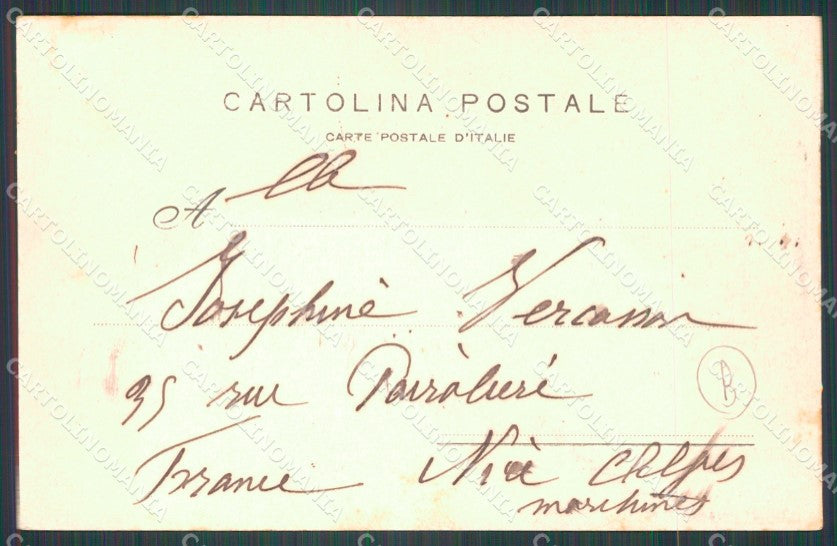 CARTOLINA POSTALE
CARTE POSTALE D'ITALIE
A lla
Josephine Vercasson
35 rue Pairòlieré
France Nice Alpes
maritimes
B
CARTOLINOMANIA